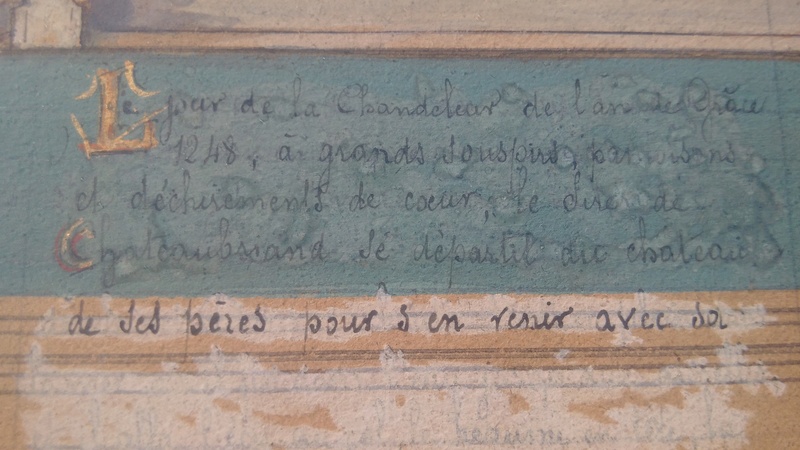 Le jour de la Chandeleur de l'an de Grâce
1248, à grands souspirs, pamoisons
et déchirements de cœur, le Sire de
Chateaubriand se départit du chateau
de ses pères pour s'en venir avec son